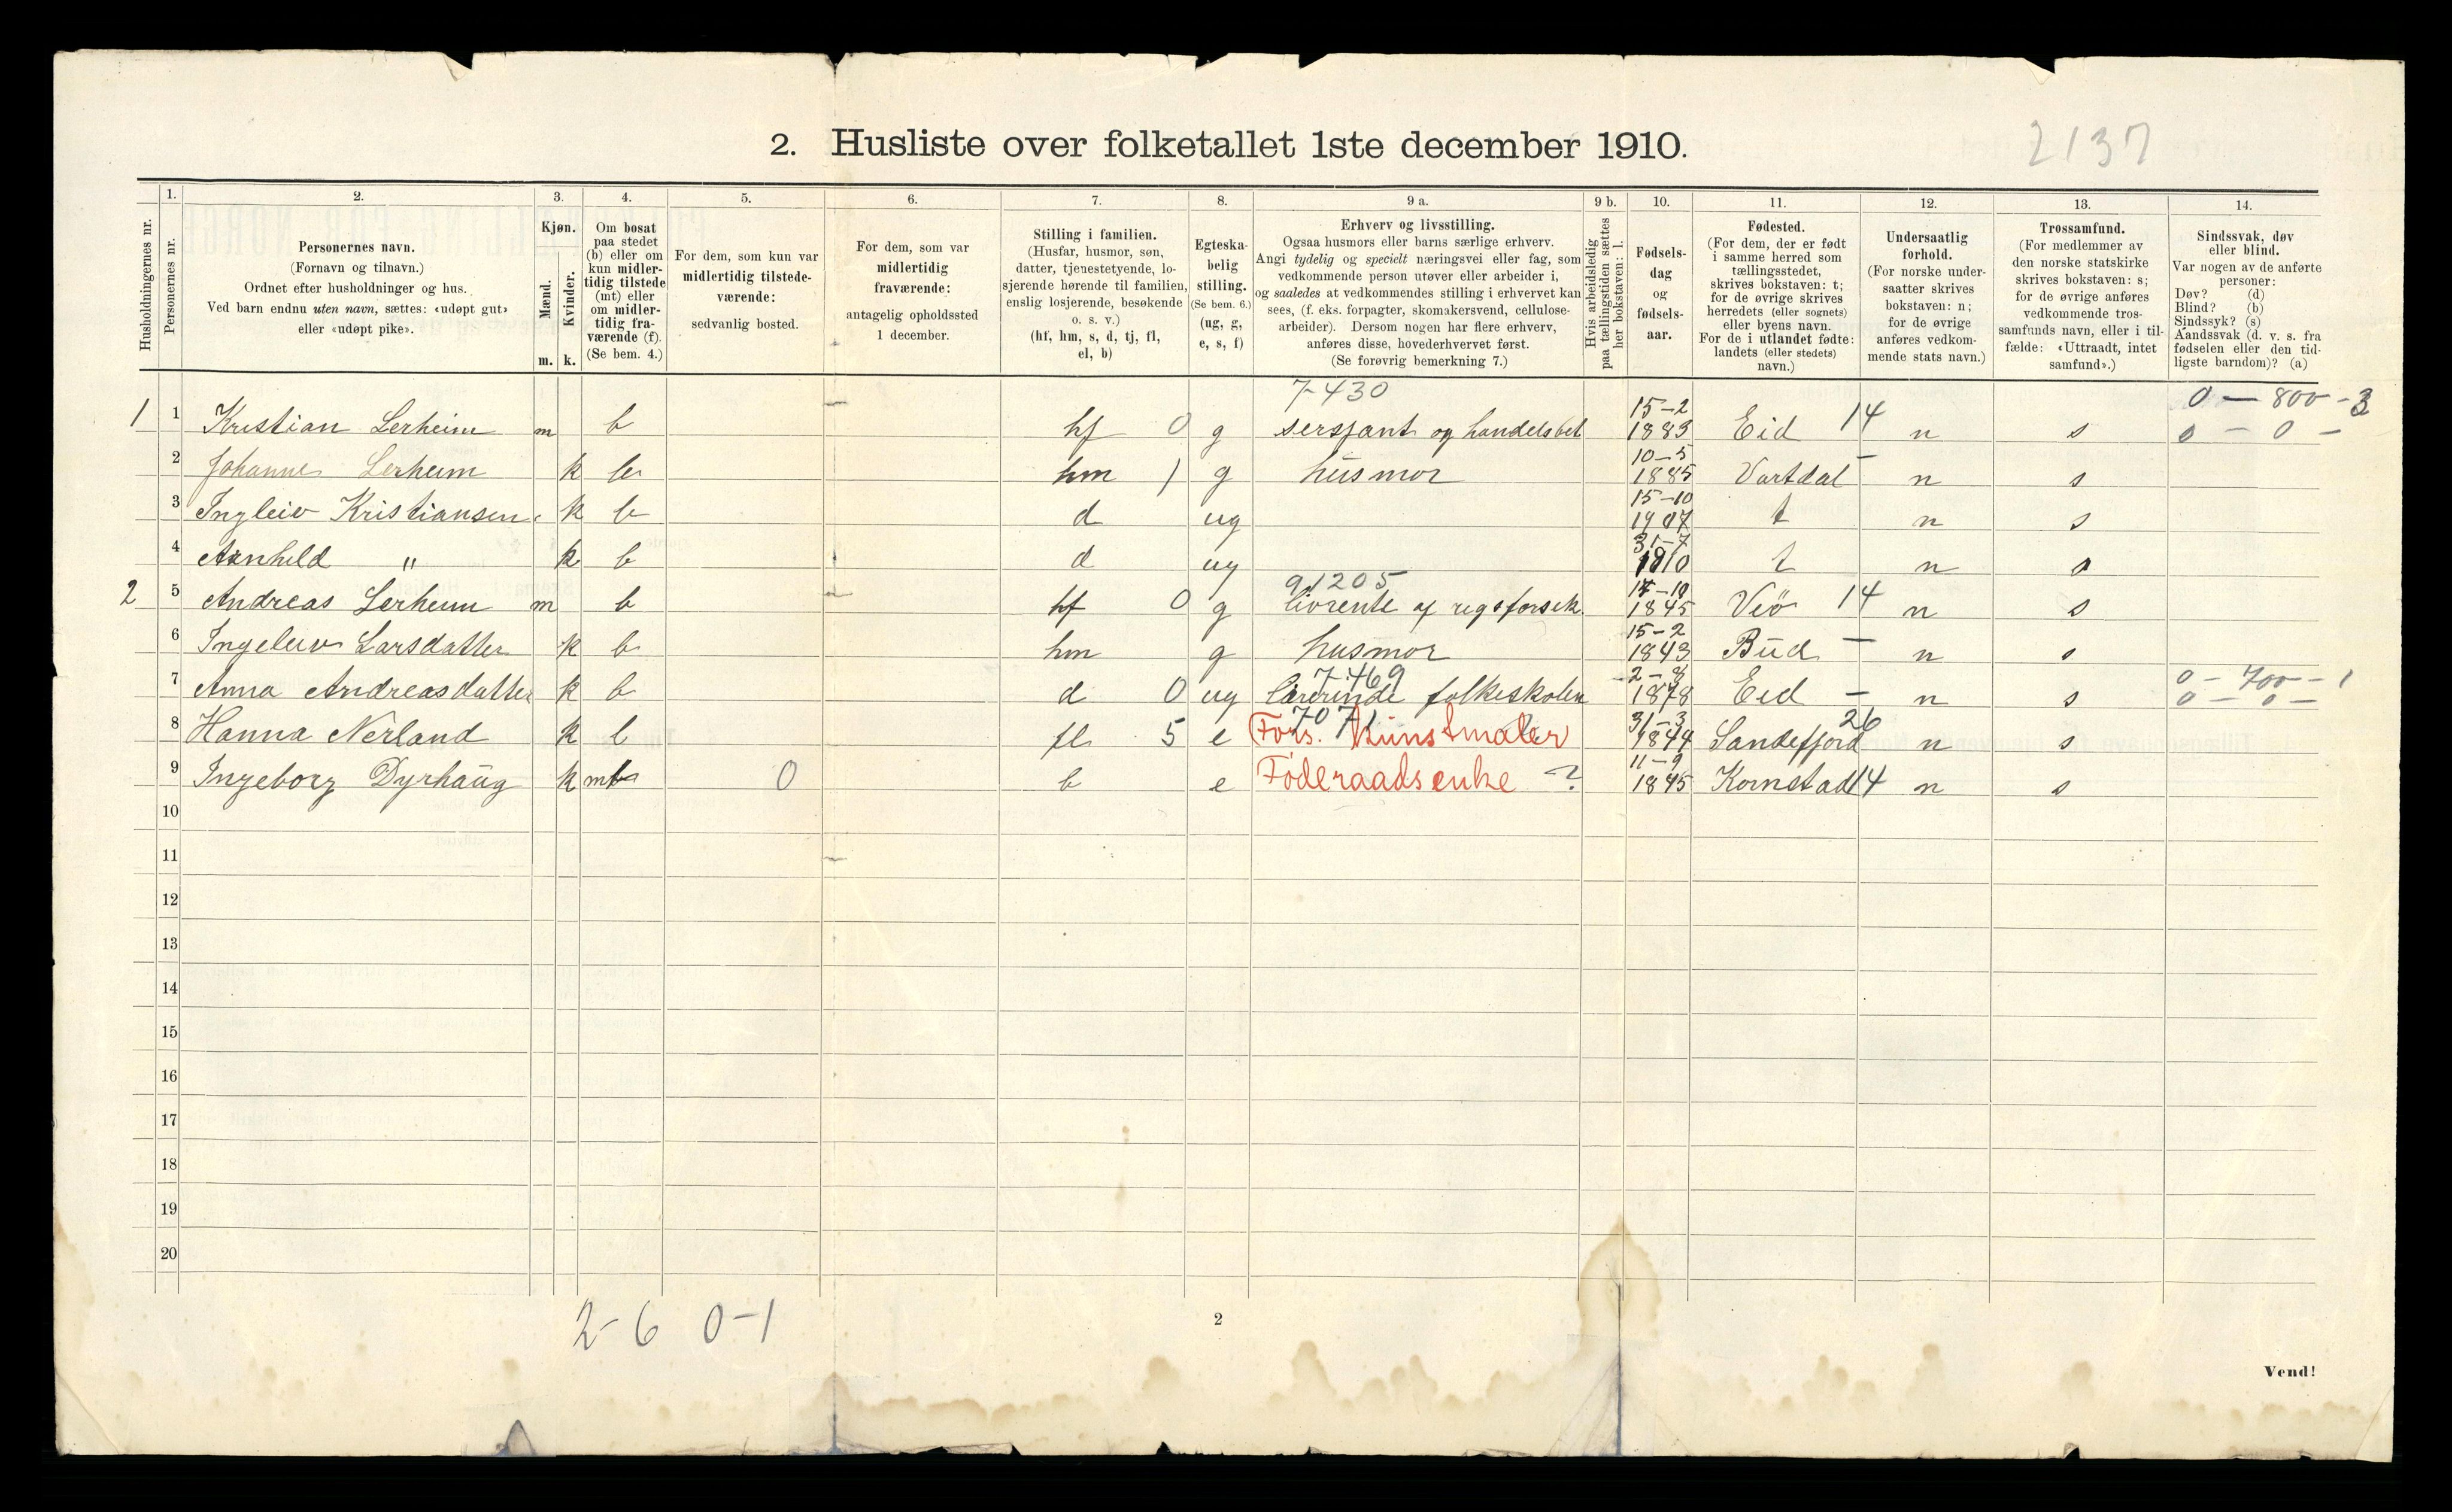 2. Husliste over folketallet 1ste december 1910.
2137
Husholdningernes nr.
1. Personernes nr.
2. Personernes navn.
(Fornavn og tilnavn.)
Ordnet efter husholdninger og hus.
Ved barn endnu uten navn, sættes: «udøpt gut»
eller «udøpt pike».
3. Kjøn.
Mænd. m.
Kvinder. k.
4. Om bosat
paa stedet
(b) eller om
kun midler-
tidig tilstede
(mt) eller
om midler-
tidig fra-
værende (f).
(Se bem. 4.)
5. For dem, som kun var
midlertidig tilstede-
værende:
sedvanlig bosted.
6. For dem, som var
midlertidig
fraværende:
antagelig opholdssted
1 december.
7. Stilling i familien.
(Husfar, husmor, søn,
datter, tjenestetyende, lo-
sjerende hørende til familien,
enslig losjerende, besøkende
o. s. v.)
(hf, hm, s, d, tj, fl,
el, b)
8. Egteska-
belig
stilling.
(Se bem. 6.)
(ug, g,
e, s, f)
9 a. Erhverv og livsstilling.
Ogsaa husmors eller barns særlige erhverv.
Angi tydelig og specielt næringsvei eller fag, som
vedkommende person utøver eller arbeider i,
og saaledes at vedkommendes stilling i erhvervet kan
sees, (f. eks. forpagter, skomakersvend, cellulose-
arbeider). Dersom nogen har flere erhverv,
anføres disse, hovederhvervet først.
(Se forøvrig bemerkning 7.)
9 b. Hvis arbeidsledig
paa tællingstiden sættes
her bokstaven: l.
10. Fødsels-
dag
og
fødsels-
aar.
11. Fødested.
(For dem, der er født
i samme herred som
tællingsstedet,
skrives bokstaven: t;
for de øvrige skrives
herredets (eller sognets)
eller byens navn.
For de i utlandet fødte:
landets (eller stedets)
navn.)
12. Undersaatlig
forhold.
(For norske under-
saatter skrives
bokstaven: n;
for de øvrige
anføres vedkom-
mende stats navn.)
13. Trossamfund.
(For medlemmer av
den norske statskirke
skrives bokstaven: s;
for de øvrige anføres
vedkommende tros-
samfunds navn, eller i til-
fælde: «Uttraadt, intet
samfund».)
14. Sindssvak, døv
eller blind.
Var nogen av de anførte
personer:
Døv? (d)
Blind? (b)
Sindssyk? (s)
Aandssvak (d. v. s. fra
fødselen eller den tid-
ligste barndom)? (a)
7-430 15-2 0 - 800 - 3
1 1 Kristian Lerheim m b hf 0 g sersjant og handelsbet 1883 Eid 14 n s 0 - 0 -
10-5
2 Johanne Lerheim k b hm 1 g husmor 1885 Vartdal - n s
15-10
3 Ingleiv Kristiansen. k b d ug 1907 t n s
31-7
4 Arnhild " k b d ug 1910 t n s
91205 17-10
2 5 Andreas Lerheim m b hf 0 g livrente af rigsforsik. 1845 Veö 14 n s
15-2
6 Ingeleiv Larsdatter k b hm g husmor 1843 Bud - n s
7469 2-8 0 - 700 - 1
7 Anna Andreasdatter k b d 0 ug lærerinde folkeskolen 1878 Eid - n s 0 - 0 -
7071 31-3 26
8 Hanna Nerland k b fl 5 e Fors. Kunstmaler 1844 Sandefjord n s
11-9
9 Ingeborg Dyrhaug k mt 0 b e Føderaadsenke ? 1845 Kornstad 14 n s
10
11
12
13
14
15
16
17
18
19
20
2-6 0-1
2
Vend!